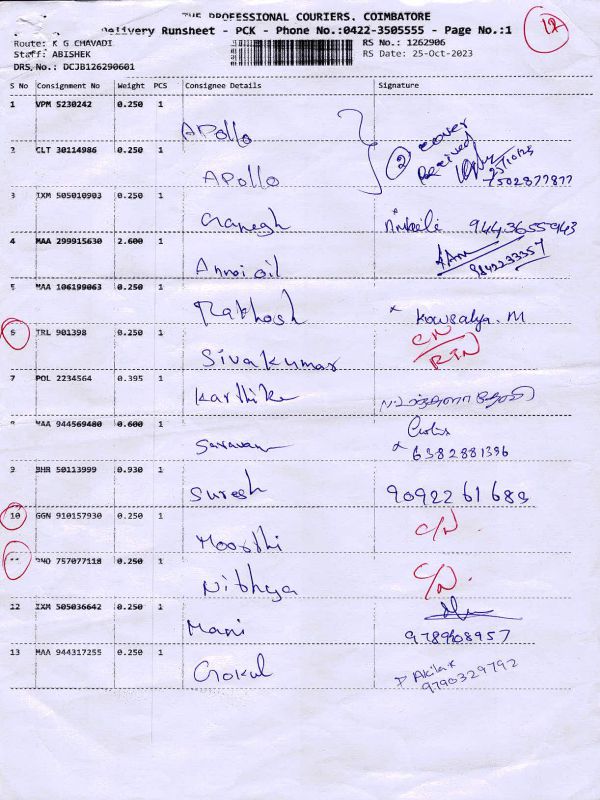 THE PROFESSIONAL COURIERS. COIMBATORE
Delivery Runsheet - PCK - Phone No.:0422-3505555 - Page No.:1
Route: K G CHAVADI
RS No.: 1262906
Staff: ABISHEK
RS Date: 25-Oct-2023
DRS No.: DCJB126290601
S No Consignment No Weight PCS Consignee Details Signature
1 VPM 5230242 0.250 1 APollo
2 CLT 30114986 0.250 1 APollo
2 cover
Received
25/10/23
7502877877
3 IXM 505010903 0.250 1 Ganegh 9443655943
4 MAA 299915630 2.600 1 Annai oil
9842233357
5 MAA 106199063 0.250 1 Rakhosh Kowsalya. M
6 TRL 901398 0.250 1 Sivakumar CN
RTN
7 POL 2234564 0.395 1 Karthike
8 MAA 944569480 0.600 1 Saravan
6382881396
9 BHR 50113999 0.930 1 Suresh 9092261683
10 GGN 910157930 0.250 1 Moorthi C/N.
757077118 0.250 1 Nithya C/N.
12 IXM 505036642 0.250 1 Mani
9789908957
13 MAA 944317255 0.250 1 Gokul P Akila
9790329792